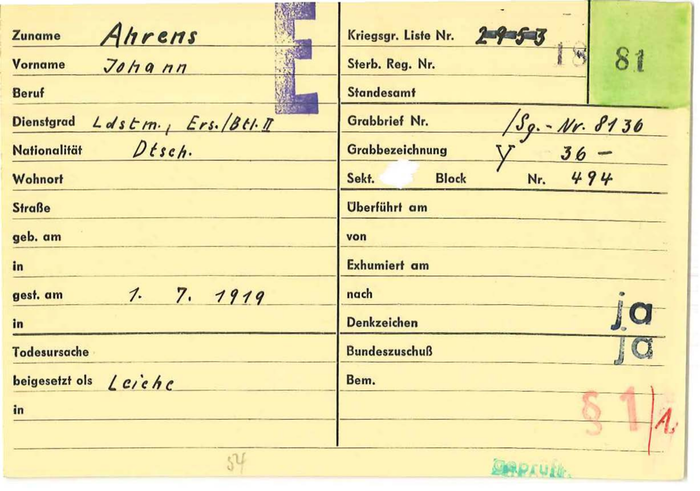 E
Zuname Ahrens
Vorname Johann
Beruf
Dienstgrad Ldstm., Ers./Btl. II
Nationalität Dtsch.
Wohnort
Straße
geb. am
in
gest. am 1. 7. 1919
in
Todesursache
beigesetzt als Leiche
in
54
Kriegsgr. Liste Nr. 2953
18 81
Sterb. Reg. Nr.
Standesamt
Grabbrief Nr. /Sg.-Nr. 8136
Grabbezeichnung Y 36 -
Sekt. Block Nr. 494
Überführt am
von
Exhumiert am
nach
Denkzeichen ja
Bundeszuschuß ja
Bem.
§ 1/A.
Geprüft